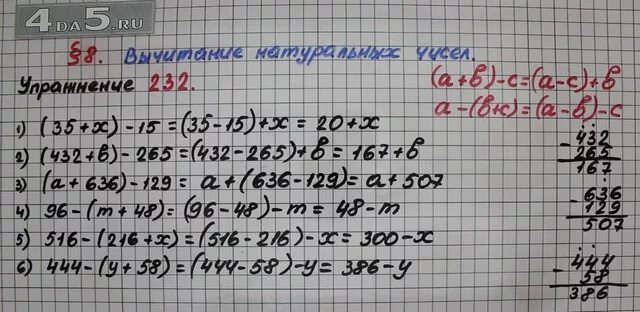 4DA5.RU
§8. Вычитание натуральных чисел.
Упражнение 232.
(а+в)-с=(а-с)+в
а-(в+с)=(а-в)-с
1) (35+х)-15=(35-15)+х=20+х
2) (432+в)-265=(432-265)+в=167+в
3) (а+636)-129=а+(636-129)=а+507
4) 96-(m+48)=(96-48)-m=48-m
5) 516-(216+х)=(516-216)-х=300-х
6) 444-(у+58)=(444-58)-у=386-у
-432
265
167
-636
129
507
-444
58
386